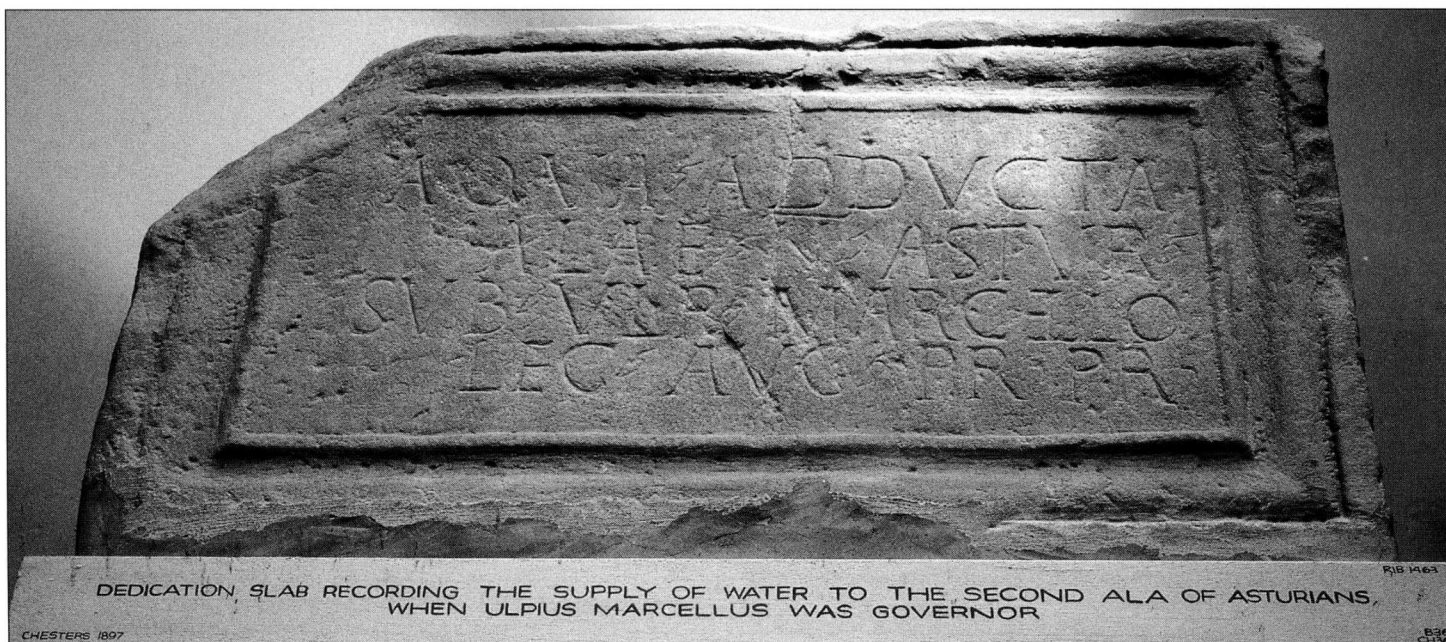 AQVA ADDVCTA
ALAE II ASTVR
SVB VLP MARCELLO
LEG AVG PR PR
RIB 1463
DEDICATION SLAB RECORDING THE SUPPLY OF WATER TO THE SECOND ALA OF ASTURIANS,
WHEN ULPIUS MARCELLUS WAS GOVERNOR
CHESTERS 1897